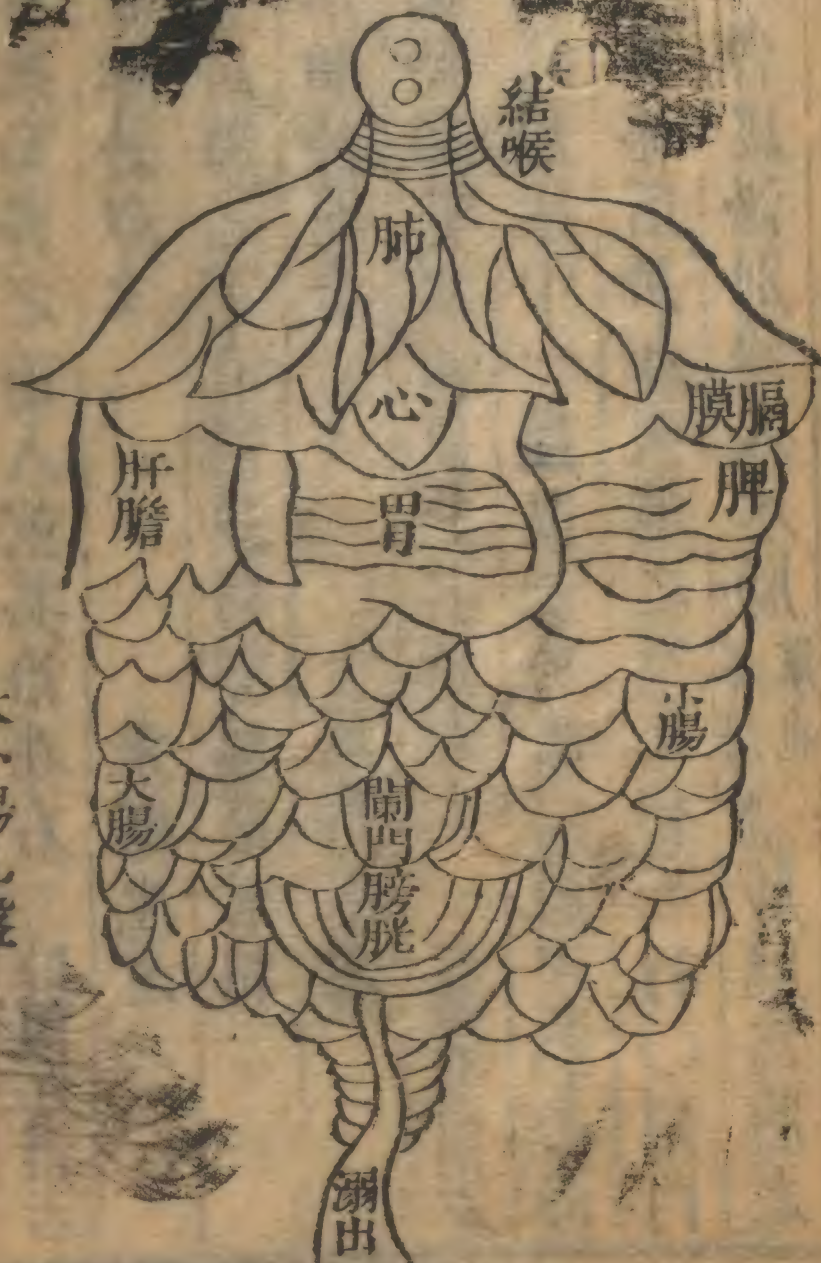 結喉
肺
心
膈膜
脾
肝膽
胃
小腸
大腸
闌門
膀胱
溺出